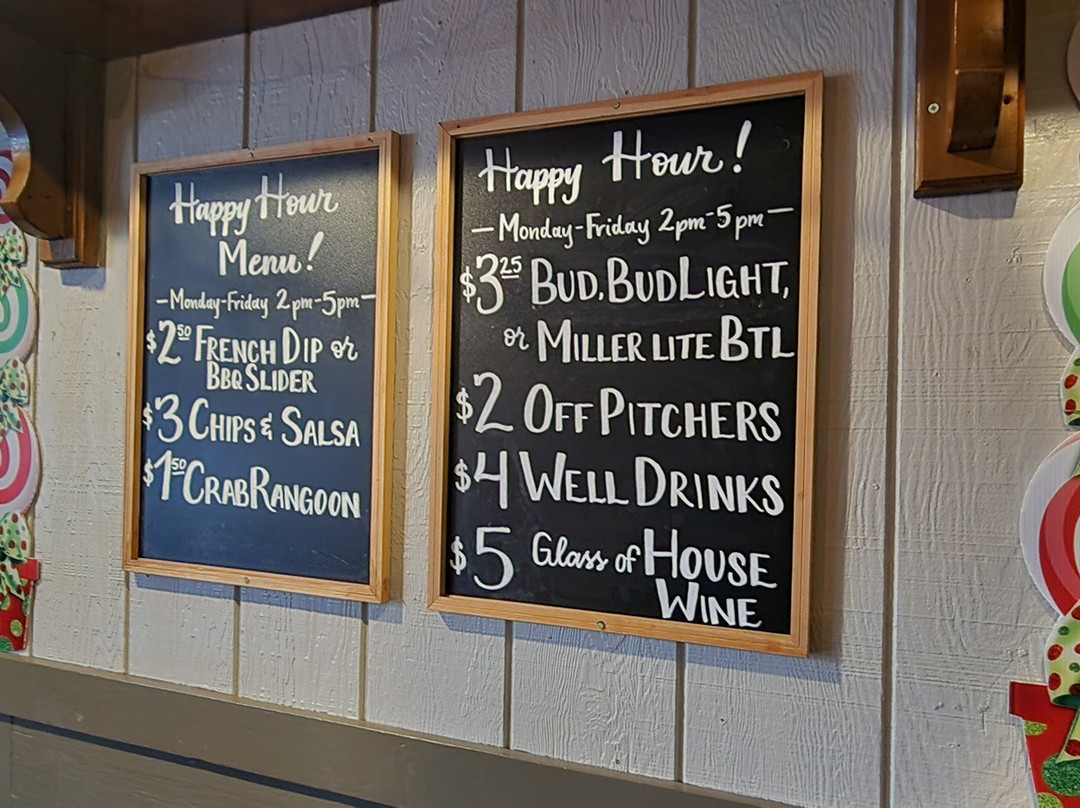 Happy Hour
Menu!
-Monday-Friday 2pm-5pm-
$2.50 FRENCH DIP or
BBQ SLIDER
$3 CHIPS & SALSA
$1.50 CRAB RANGOON
Happy Hour!
-Monday-Friday 2pm-5pm-
$3.25 BUD, BUD LIGHT,
or MILLER LITE BTL
$2 OFF PITCHERS
$4 WELL DRINKS
$5 Glass of HOUSE
WINE